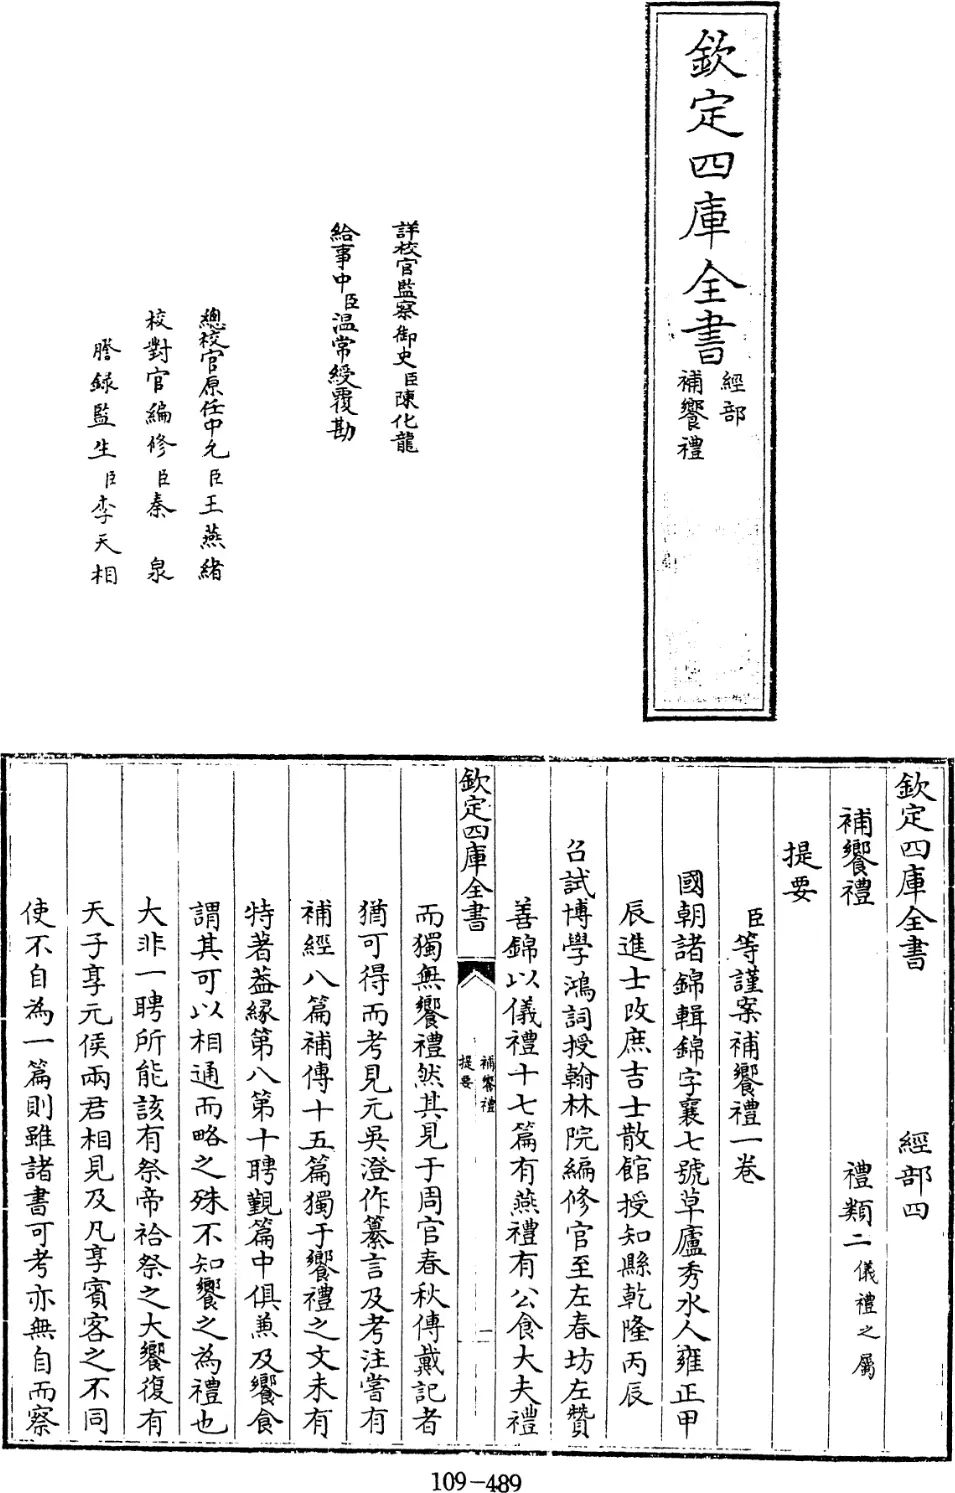 欽定四庫全書
經部
補饗禮
詳校官監察御史臣陳化龍
給事中臣温常綬覆勘
總校官原任中允臣王燕緒
校對官編修臣秦泉
謄録監生臣李天相
欽定四庫全書 經部四
補饗禮 禮類二儀禮之屬
提要
臣等謹案補饗禮一卷
國朝諸錦輯錦字襄七號草廬秀水人雍正甲
辰進士改庶吉士散館授知縣乾隆丙辰
召試博學鴻詞授翰林院編修官至左春坊左贊
善錦以儀禮十七篇有燕禮有公食大夫禮
欽定四庫全書
補饗禮
提要
一
而獨無饗禮然其見于周官春秋傳戴記者
猶可得而考見元吳澄作纂言及考注嘗有
補經八篇補傳十五篇獨于饗禮之文未有
特著葢緣第八第十聘覲篇中俱兼及饗食
謂其可以相通而略之殊不知饗之為禮也
大非一聘所能該有祭帝祫祭之大饗復有
天子享元侯兩君相見及凡享賓客之不同
使不自為一篇則雖諸書可考亦無自而察
109-489